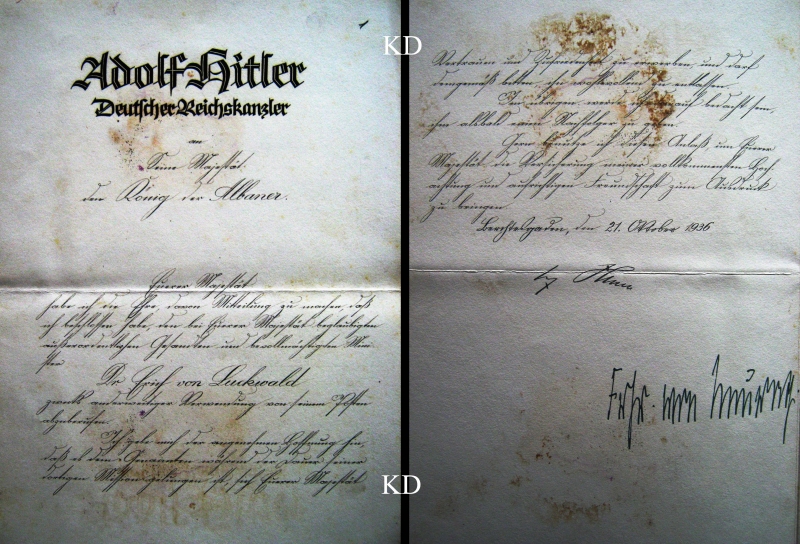 1
KD
Adolf Hitler
Deutscher Reichskanzler
an
Seine Majestät
den König der Albaner.
Euerer Majestät
habe ich die Ehre, davon Mitteilung zu machen, daß
ich beschlossen habe, den bei Euerer Majestät beglaubigten
außerordentlichen Gesandten und bevollmächtigten Mini
ster
Dr Erich von Luckwald
zwecks anderweitiger Verwendung von seinem Posten
abzuberufen.
Ich gebe mich der angenehmen Hoffnung hin,
daß es dem Genannten während der Dauer seiner
dortigen Mission gelungen ist, sich Euerer Majestät
KD
Vertrauen und Zufriedenheit zu erwerben, und darf
demgemäß bitten, ihn wohlwollend zu entlassen.
Im übrigen werde ich darauf bedacht sein,
ihm alsbald einen Nachfolger zu geben.
Gern benutze ich diesen Anlaß, um Euerer
Majestät die Versicherung meiner vollkommensten Hoch
achtung und aufrichtigen Freundschaft zum Ausdruck
zu bringen.
Berchtesgaden, den 21. Oktober 1936
Frhr. von Neurath